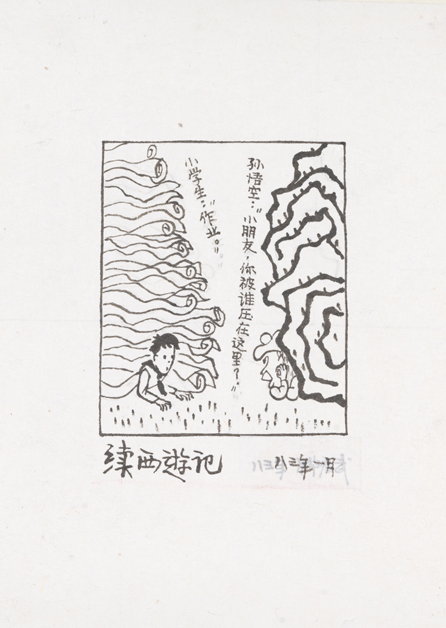 孙悟空："小朋友，你被谁压在这里？"
小学生："作业。"
续西遊记
八三年一月